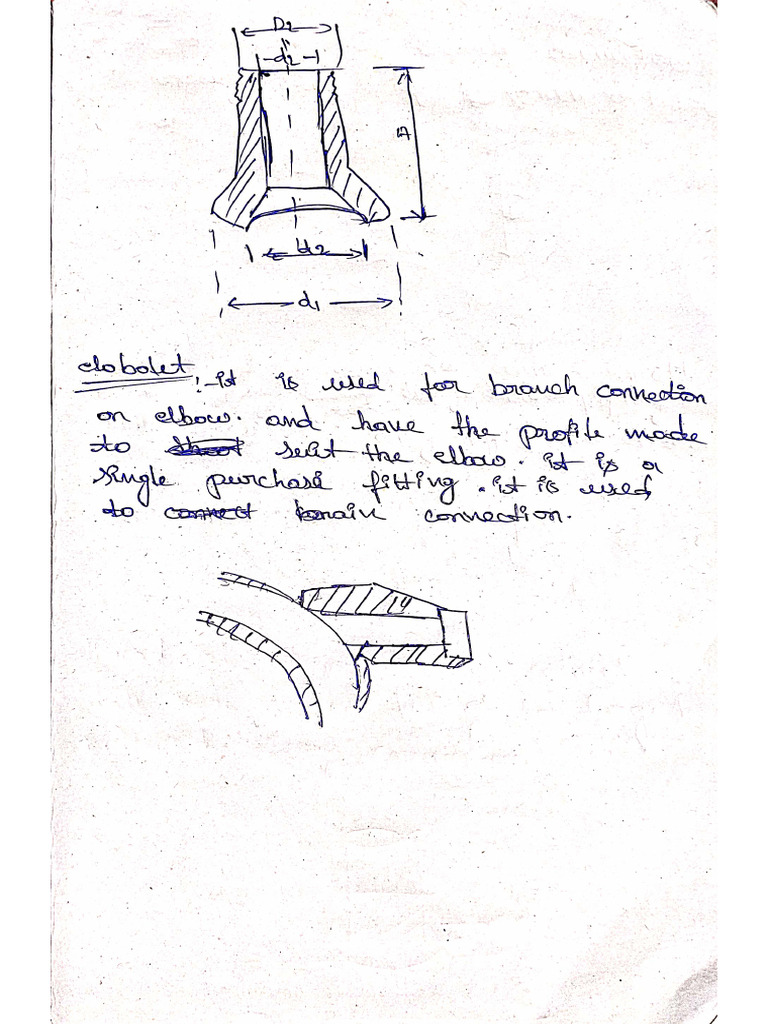 D2
d2
A
d2
d1
elobolet :- it is used for branch connection
on elbow. and have the profile made
to suit the elbow. it is a
single purchase fitting. it is used
to connect brain connection.